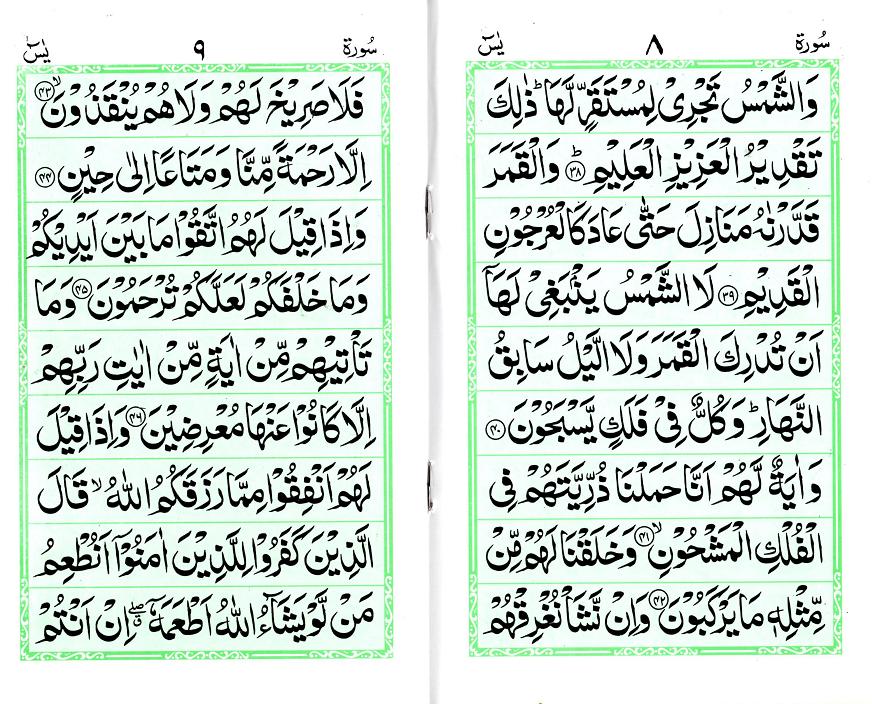 سُورة ٨ يٰسٓ
وَالشَّمْسُ تَجْرِیْ لِمُسْتَقَرٍّ لَّهَا ؕ ذٰلِكَ
تَقْدِیْرُ الْعَزِیْزِ الْعَلِیْمِ ؕ﴿۳۸﴾ وَالْقَمَرَ
قَدَّرْنٰهُ مَنَازِلَ حَتّٰی عَادَ كَالْعُرْجُوْنِ
الْقَدِیْمِ ﴿۳۹﴾ لَا الشَّمْسُ یَنْۢبَغِیْ لَهَاۤ
اَنْ تُدْرِكَ الْقَمَرَ وَلَا الَّیْلُ سَابِقُ
النَّهَارِ ؕ وَكُلٌّ فِیْ فَلَكٍ یَّسْبَحُوْنَ ﴿۴۰﴾
وَاٰیَةٌ لَّهُمْ اَنَّا حَمَلْنَا ذُرِّیَّتَهُمْ فِی
الْفُلْكِ الْمَشْحُوْنِ ۙ﴿۴۱﴾ وَخَلَقْنَا لَهُمْ مِّنْ
مِّثْلِهٖ مَا یَرْكَبُوْنَ ﴿۴۲﴾ وَاِنْ نَّشَاْ نُغْرِقْهُمْ
سُورة ٩ يٰسٓ
فَلَا صَرِیْخَ لَهُمْ وَلَا هُمْ یُنْقَذُوْنَ ۙ﴿۴۳﴾
اِلَّا رَحْمَةً مِّنَّا وَمَتَاعًا اِلٰی حِیْنٍ ﴿۴۴﴾
وَاِذَا قِیْلَ لَهُمُ اتَّقُوْا مَا بَیْنَ اَیْدِیْكُمْ
وَمَا خَلْفَكُمْ لَعَلَّكُمْ تُرْحَمُوْنَ ﴿۴۵﴾ وَمَا
تَاْتِیْهِمْ مِّنْ اٰیَةٍ مِّنْ اٰیٰتِ رَبِّهِمْ
اِلَّا كَانُوْا عَنْهَا مُعْرِضِیْنَ ﴿۴۶﴾ وَاِذَا قِیْلَ
لَهُمْ اَنْفِقُوْا مِمَّا رَزَقَكُمُ اللّٰهُ ۙ قَالَ
الَّذِیْنَ كَفَرُوْا لِلَّذِیْنَ اٰمَنُوْۤا اَنُطْعِمُ
مَنْ لَّوْ یَشَآءُ اللّٰهُ اَطْعَمَهٗۤ ۖۗ اِنْ اَنْتُمْ